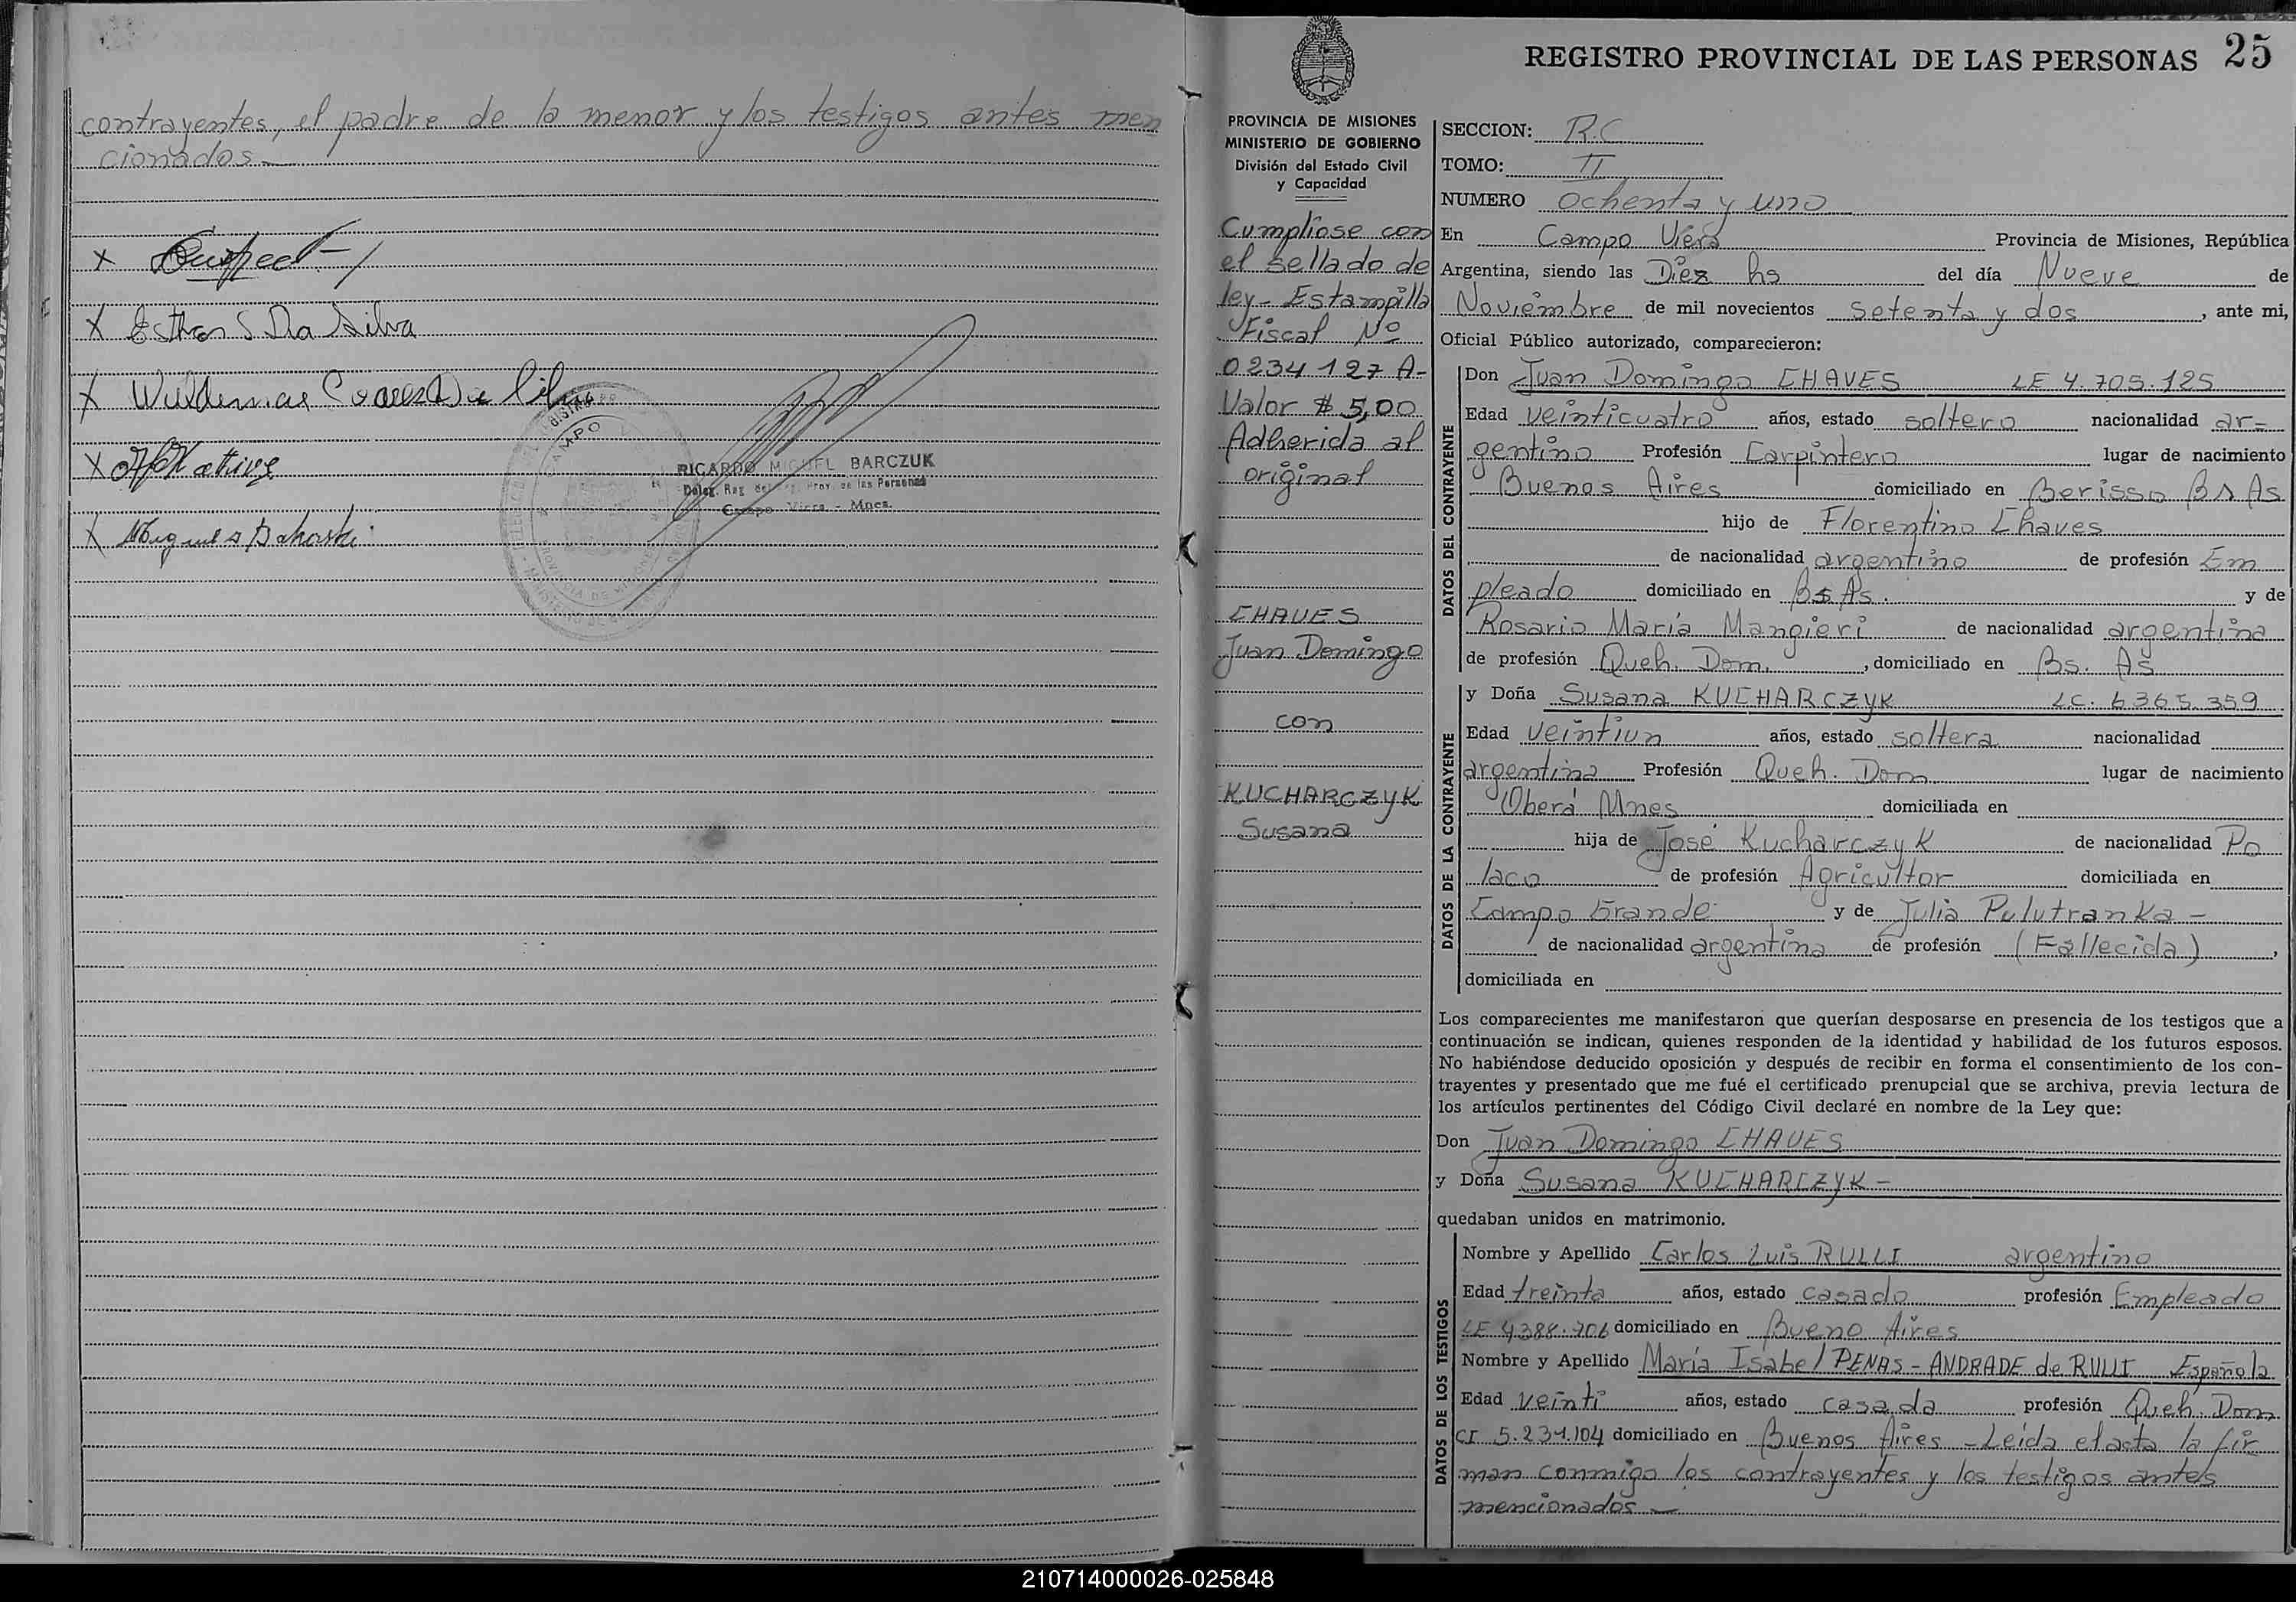 contrayentes, el padre de la menor y los testigos antes men
cionados.—
X
X Esther S Da Silva
X
X
X
RICARDO MIGUEL BARCZUK
Deleg. Reg. de las Personas
Campo Viera - Mnes.
REGISTRO PROVINCIAL DE LAS PERSONAS 25
PROVINCIA DE MISIONES
MINISTERIO DE GOBIERNO
División del Estado Civil
y Capacidad
Cumplíose con
el sellado de
ley- Estampilla
Fiscal Nº
0234127 A-
Valor $ 5,00
Adherida al
original
CHAVES
Juan Domingo
con
KUCHARCZYK
Susana
SECCION: R.C
TOMO: II
NUMERO Ochenta y uno
En Campo Viera Provincia de Misiones, República
Argentina, siendo las Diez hs del día Nueve de
Noviembre de mil novecientos setenta y dos, ante mi,
Oficial Público autorizado, comparecieron:
DATOS DEL CONTRAYENTE
Don Juan Domingo CHAVES LE 4.705.125
Edad veinticuatro años, estado soltero nacionalidad ar=
gentino Profesión Carpintero lugar de nacimiento
Buenos Aires domiciliado en Berisso Bs As
hijo de Florentino Chaves
de nacionalidad argentino de profesión Em
pleado domiciliado en Bs As. y de
Rosario María Mangieri de nacionalidad argentina
de profesión Queh. Dom., domiciliado en Bs. As
DATOS DE LA CONTRAYENTE
y Doña Susana KUCHARCZYK LC. 6365.359
Edad veintiun años, estado soltera nacionalidad
argentina Profesión Queh. Dom lugar de nacimiento
Oberá Mnes domiciliada en
hija de José Kucharczyk de nacionalidad Po
laco de profesión Agricultor domiciliada en
Campo Grande y de Julia Pulutranka -
de nacionalidad argentina de profesión (Fallecida),
domiciliada en
Los comparecientes me manifestaron que querían desposarse en presencia de los testigos que a
continuación se indican, quienes responden de la identidad y habilidad de los futuros esposos.
No habiéndose deducido oposición y después de recibir en forma el consentimiento de los con-
trayentes y presentado que me fué el certificado prenupcial que se archiva, previa lectura de
los artículos pertinentes del Código Civil declaré en nombre de la Ley que:
Don Juan Domingo CHAVES
y Doña Susana KUCHARCZYK -
quedaban unidos en matrimonio.
DATOS DE LOS TESTIGOS
Nombre y Apellido Carlos Luis RULLI argentino
Edad treinta años, estado casado profesión Empleado
LE 4388.706 domiciliado en Bueno Aires
Nombre y Apellido María Isabel PENAS - ANDRADE de RULLI Española
Edad veinti años, estado casada profesión Queh. Dom
CI 5.231.104 domiciliado en Buenos Aires - Leída el acta la fir
man conmigo los contrayentes y los testigos antes
mencionados —
210714000026-025848